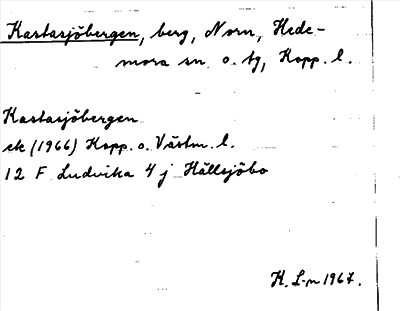 Kastasjöbergen, berg, Norn, Hede-
mora sn o. tg, Kopp. l.
Kastasjöbergen
ek (1966) Kopp. o. Västm. l.
12 F Ludvika 4 j Hällsjöbo
K. L-n 1967.